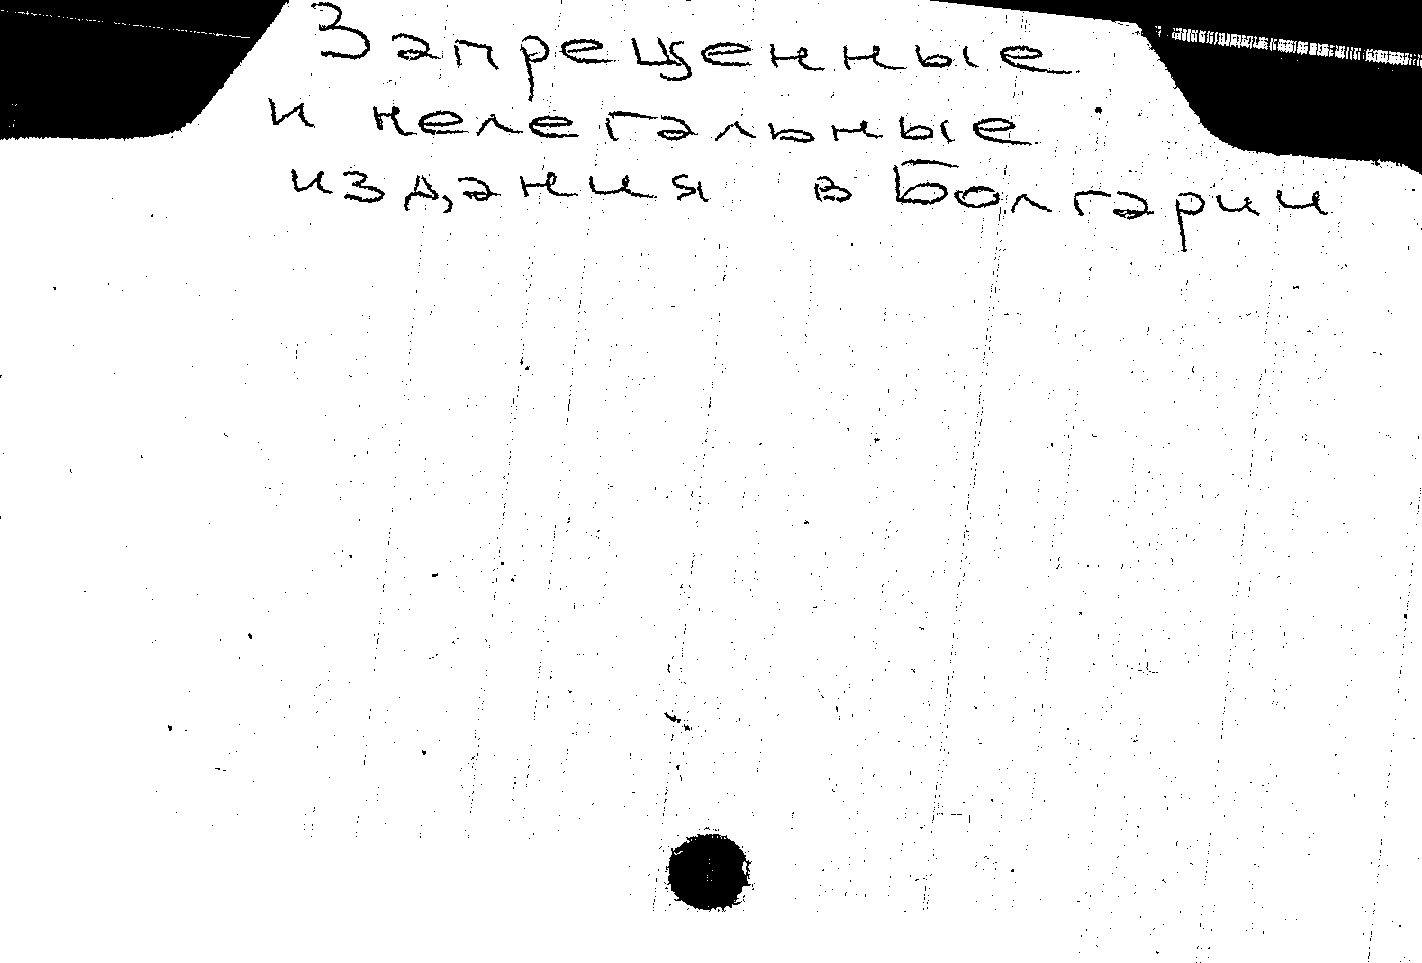 Запрещенные
и нелегальные
издания в Болгарии